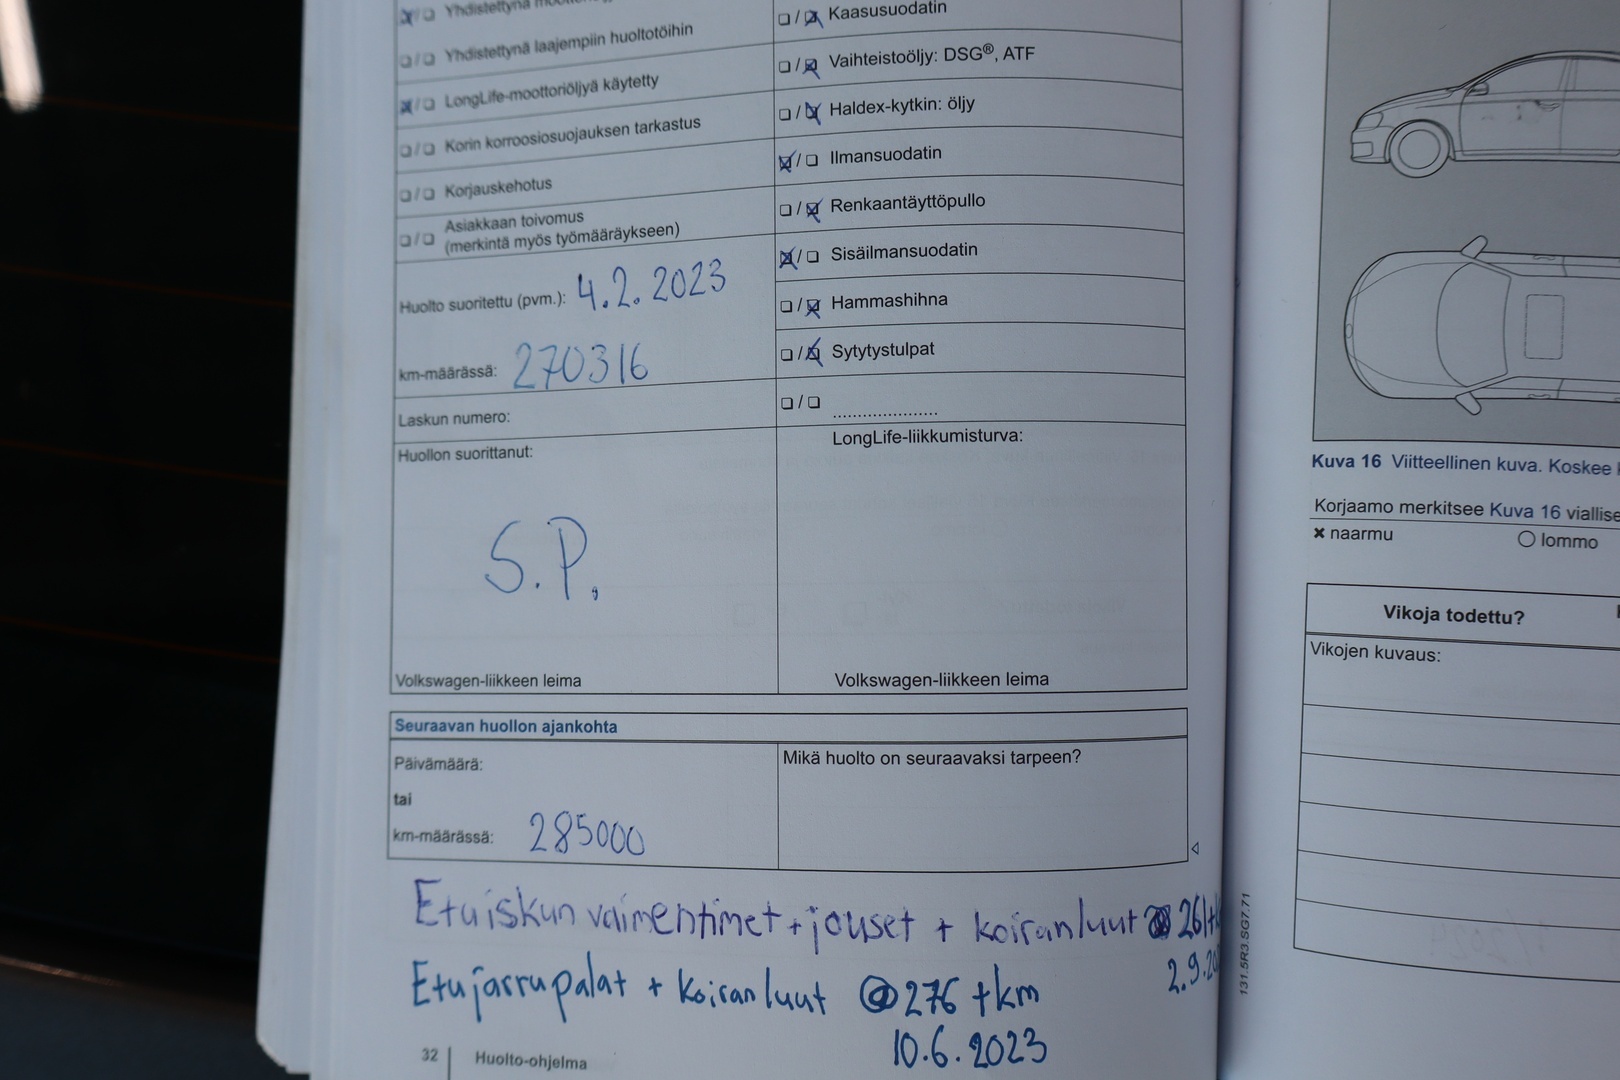 Yhdistettynä
Yhdistettynä laajempiin huoltotöihin
LongLife-moottoriöljyä käytetty
Korin korroosiosuojauksen tarkastus
Korjauskehotus
Asiakkaan toivomus
(merkintä myös työmääräykseen)
Huolto suoritettu (pvm.): 4.2.2023
km-määrässä: 270316
Laskun numero:
Huollon suorittanut:
S.P.
Volkswagen-liikkeen leima
Kaasusuodatin
Vaihteistoöljy: DSG®, ATF
Haldex-kytkin: öljy
Ilmansuodatin
Renkaantäyttöpullo
Sisäilmansuodatin
Hammashihna
Sytytystulpat
LongLife-liikkumisturva:
Volkswagen-liikkeen leima
Seuraavan huollon ajankohta
Päivämäärä:
tai
km-määrässä: 285000
Mikä huolto on seuraavaksi tarpeen?
Etuiskunvaimentimet + jouset + koiranluut @ 261t
2.9.20
Etujarrupalat + koiranluut @ 276 tkm
10.6.2023
32 Huolto-ohjelma
131.5R3.SG7.71
Kuva 16 Viitteellinen kuva. Koskee
Korjaamo merkitsee Kuva 16 viallise
× naarmu ○ lommo
Vikoja todettu?
Vikojen kuvaus: